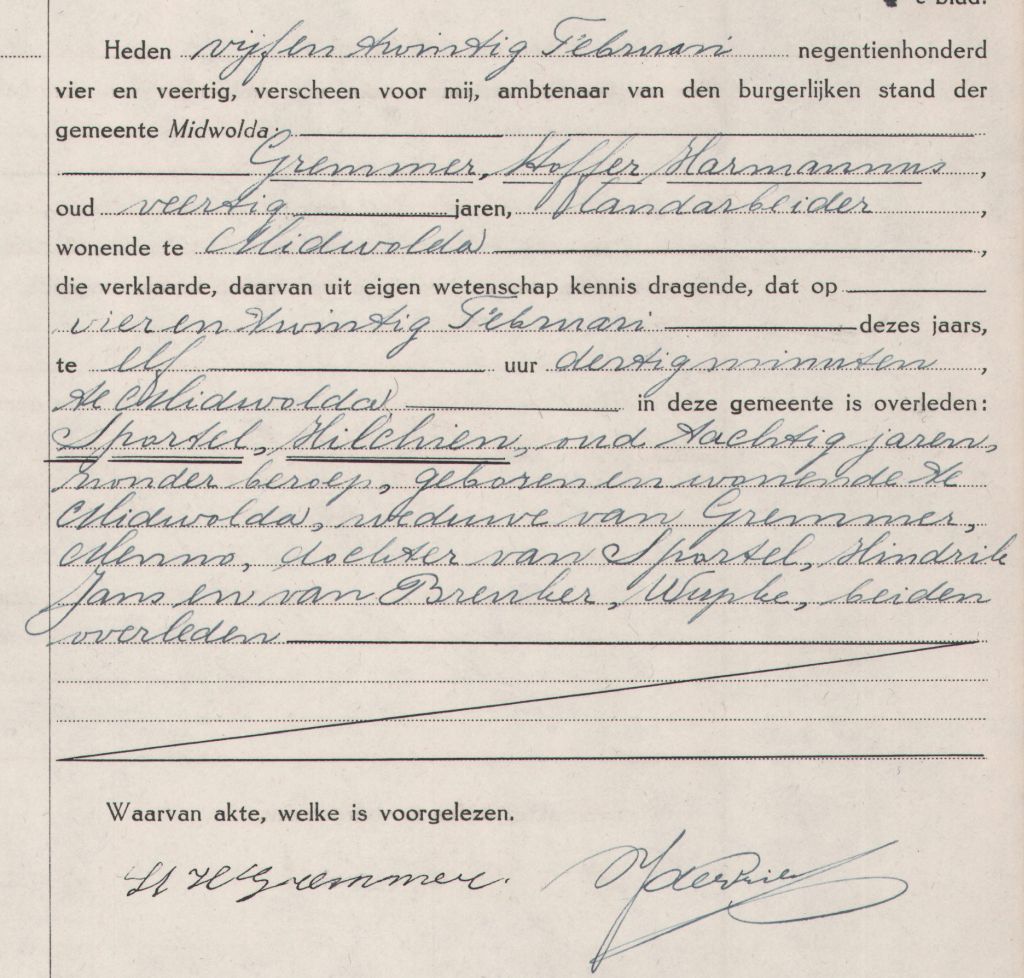 e blad.
Heden vijf en twintig Februari negentienhonderd
vier en veertig, verscheen voor mij, ambtenaar van den burgerlijken stand der
gemeente Midwolda:
Gremmer, Hoffer Harmannus,
oud veertig jaren, landarbeider,
wonende te Midwolda,
die verklaarde, daarvan uit eigen wetenschap kennis dragende, dat op
vier en twintig Februari dezes jaars,
te elf uur dertig minuten,
te Midwolda in deze gemeente is overleden:
Sportel, Hilchien, oud tachtig jaren,
zonder beroep, geboren en wonende te
Midwolda, weduwe van Gremmer,
Menno, dochter van Sportel, Hindrik
Jans en van Breuker, Wupke, beiden
overleden
Waarvan akte, welke is voorgelezen.
H H Gremmer.